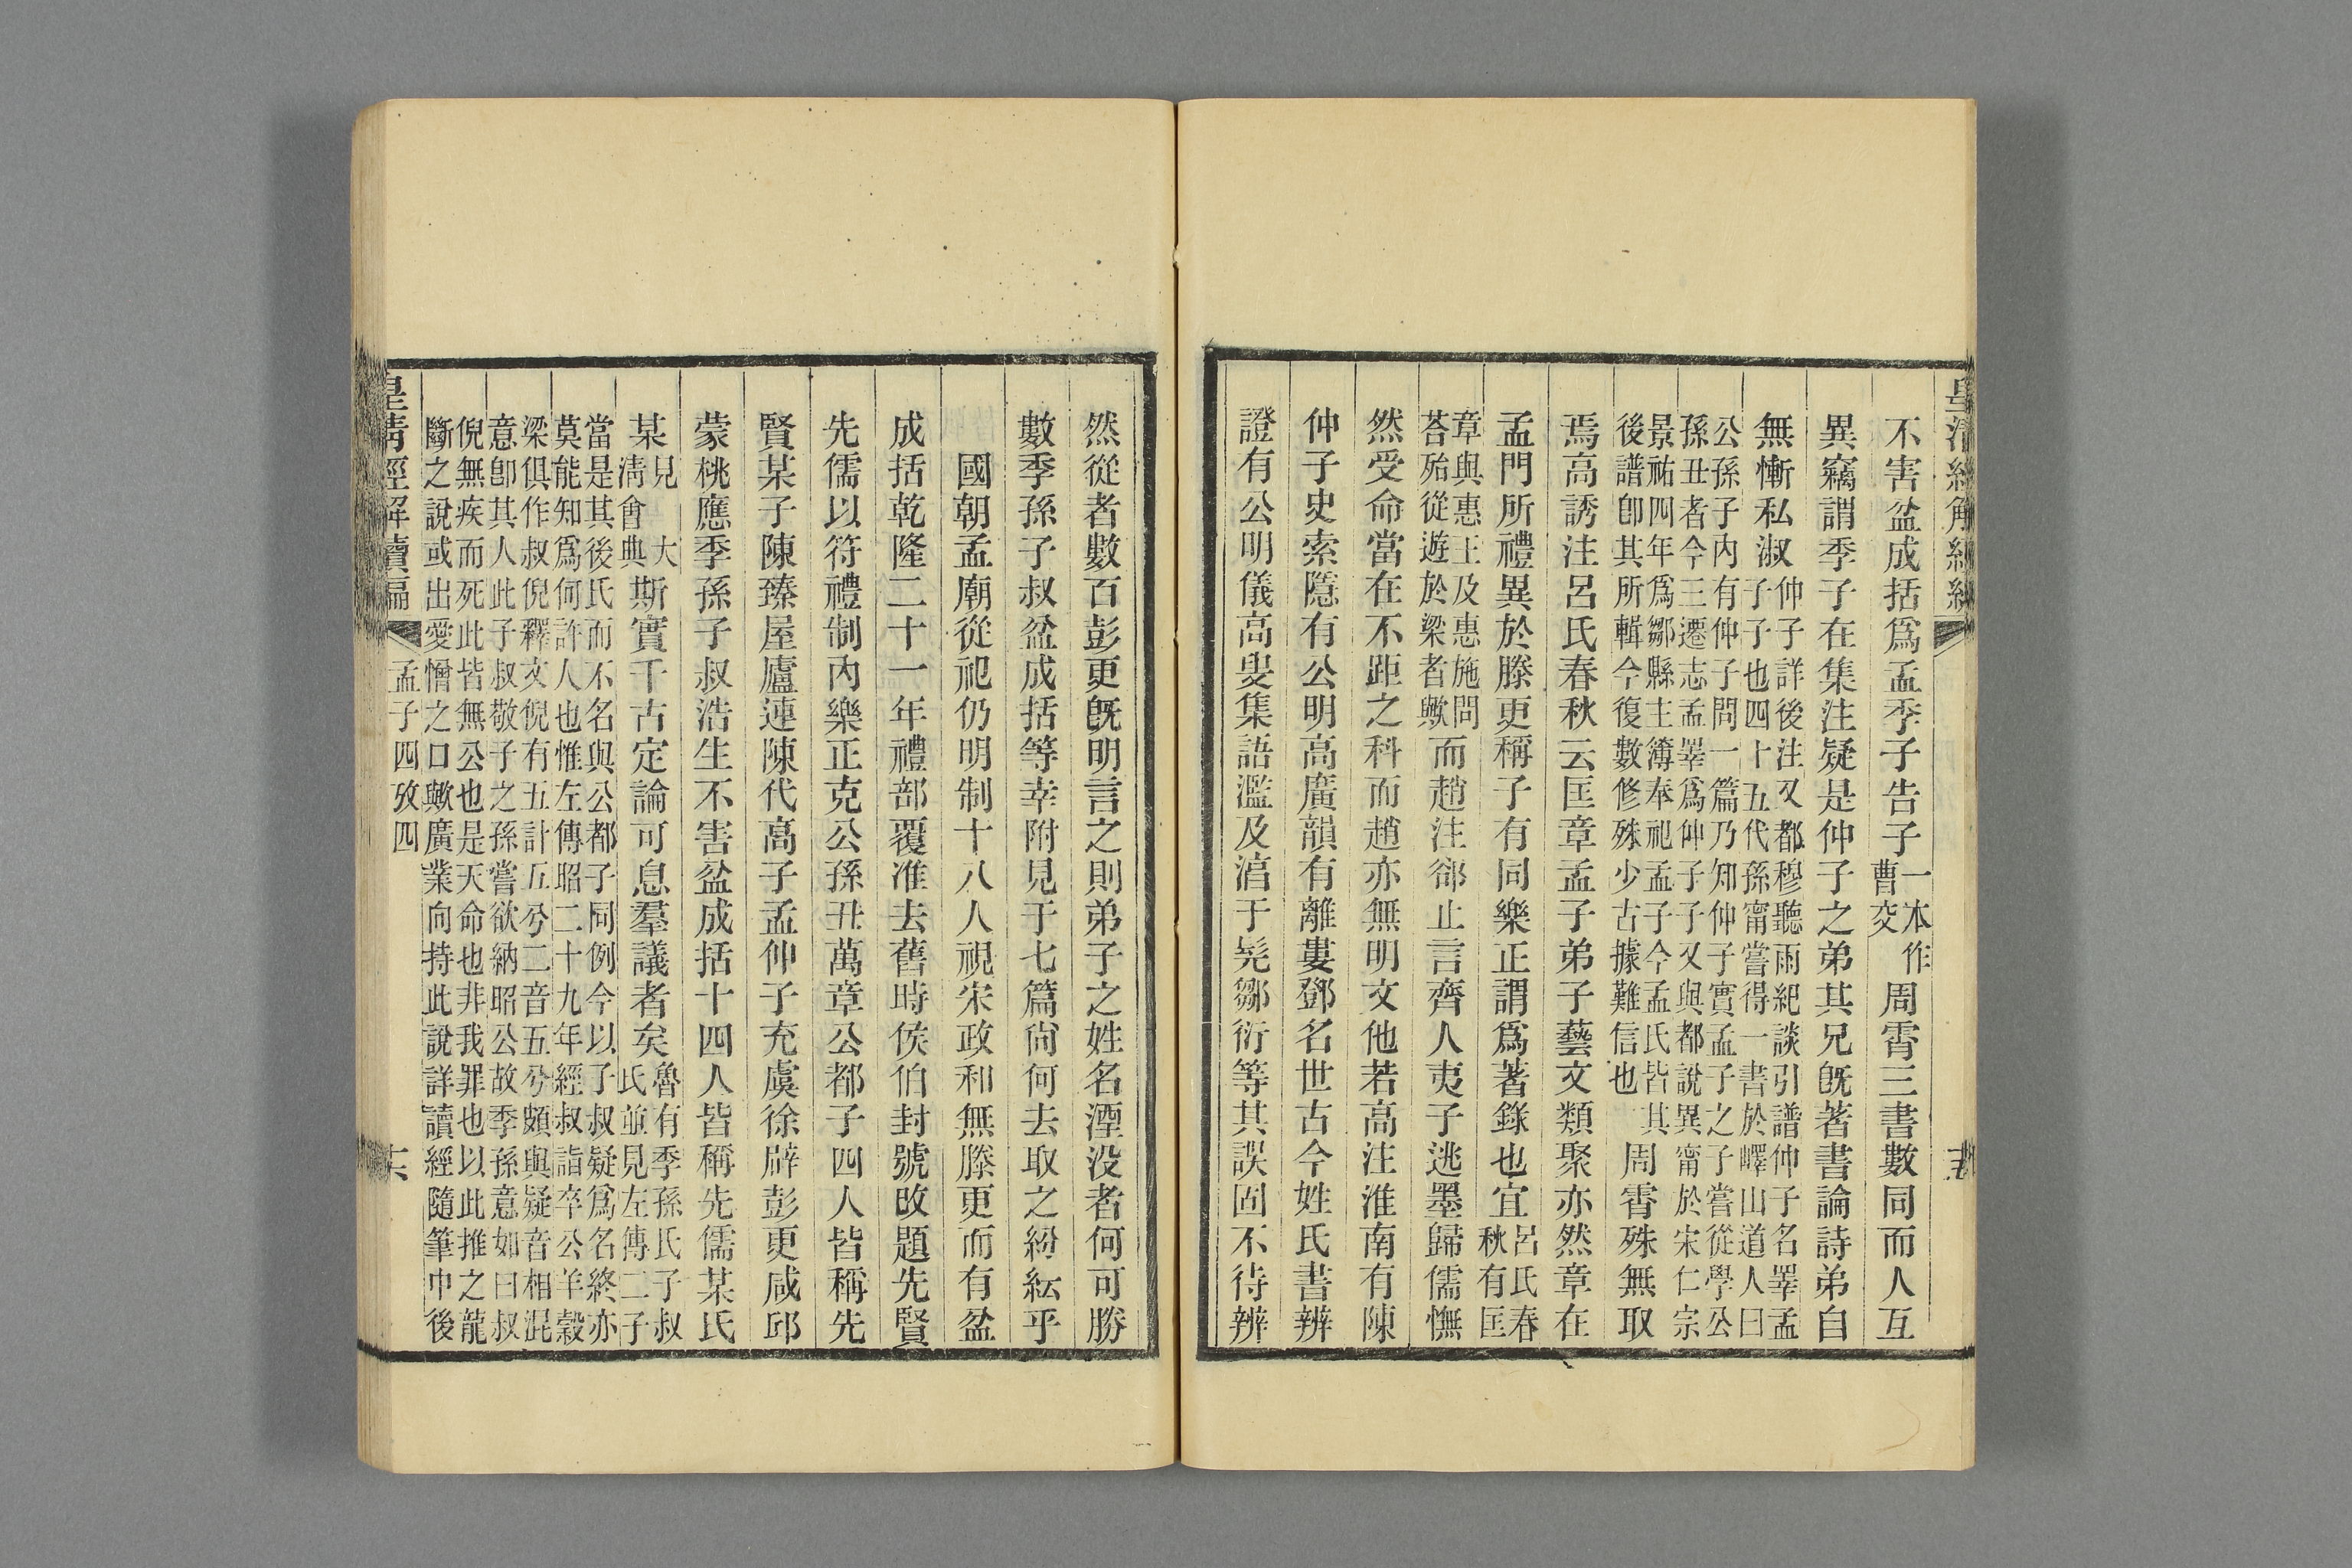 皇清經解續編 十五
不害盆成括爲孟季子告子一本作曹交周霄三書數同而人互
異竊謂季子在集注疑是仲子之弟其兄旣著書論詩弟自
無慚私淑仲子詳後注又都穆聽雨紀談引譜仲子名睪孟
子子也四十五代孫甯嘗得一書於嶧山道人曰
公孫子內有仲子問一篇乃知仲子實孟子之子嘗從學公
孫丑者今三遷志孟睪爲仲子子又與都說異甯於宋仁宗
景祐四年爲鄒縣主簿奉祀孟子今孟氏皆其
後譜卽其所輯今復數修殊少古據難信也周霄殊無取
焉高誘注呂氏春秋云匡章孟子弟子藝文類聚亦然章在
孟門所禮異於滕更稱子有同樂正謂爲著錄也宜呂氏春秋有匡
章與惠王及惠施問
荅殆從遊於梁者歟而趙注郤止言齊人夷子逃墨歸儒憮
然受命當在不距之科而趙亦無明文他若高注淮南有陳
仲子史索隱有公明高廣韻有離婁鄧名世古今姓氏書辨
證有公明儀高叟集語濫及湻于髡鄒衍等其誤固不待辨
然從者數百彭更旣明言之則弟子之姓名湮没者何可勝
數季孫子叔盆成括等幸附見于七篇尙何去取之紛紜乎
國朝孟廟從祀仍明制十八人視宋政和無滕更而有盆
成括乾隆二十一年禮部覆准去舊時侯伯封號改題先賢
先儒以符禮制內樂正克公孫丑萬章公都子四人皆稱先
賢某子陳臻屋廬連陳代高子孟仲子充虞徐辟彭更咸邱
蒙桃應季孫子叔浩生不害盆成括十四人皆稱先儒某氏
某見大淸會典斯實千古定論可息羣議者矣魯有季孫氏子叔
氏並見左傳二子
當是其後氏而不名與公都子同例今以子叔疑爲名終亦
莫能知爲何許人也惟左傳昭二十九年經叔詣卒公羊穀
梁俱作叔倪釋文倪有五計五兮二音五兮頗與疑音相混
意卽其人此子叔敬子之孫嘗欲納昭公故季孫意如曰叔
倪無疾而死此皆無公也是天命也非我罪也以此推之龍
斷之說或出愛憎之口歟廣業向持此說詳讀經隨筆中後
皇清經解續編 孟子四攷四 十六